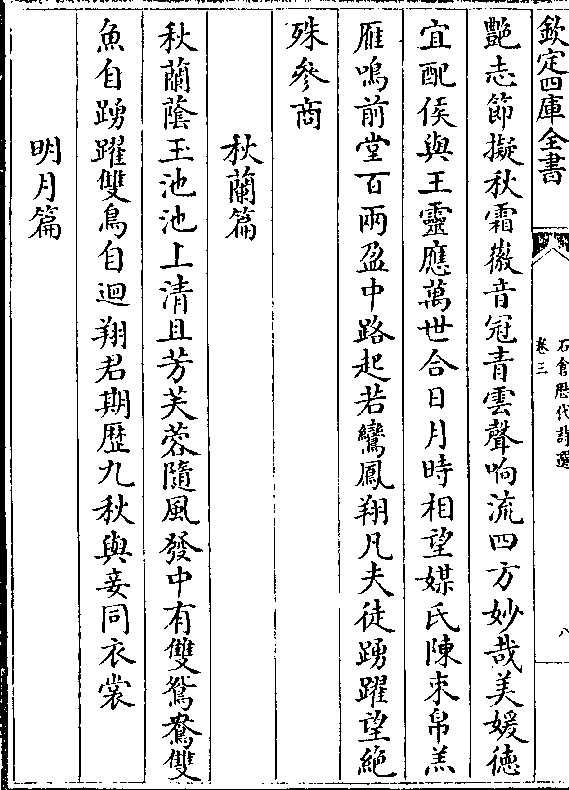 欽定四庫全書
石倉歴代詩選
卷三
八
艶志節擬秋霜徽音冠青雲聲响流四方妙哉美媛徳
宜配侯與王靈應萬世合日月時相望媒氏陳束帛羔
雁鳴前堂百兩盈中路起若鸞鳳翔凡夫徒踴躍望絶
殊參商
秋蘭篇
秋蘭蔭玉池池上清且芳芙蓉隨風發中有雙鴛鴦雙
魚自踴躍雙鳥自迴翔君期歴九秋與妾同衣裳
明月篇